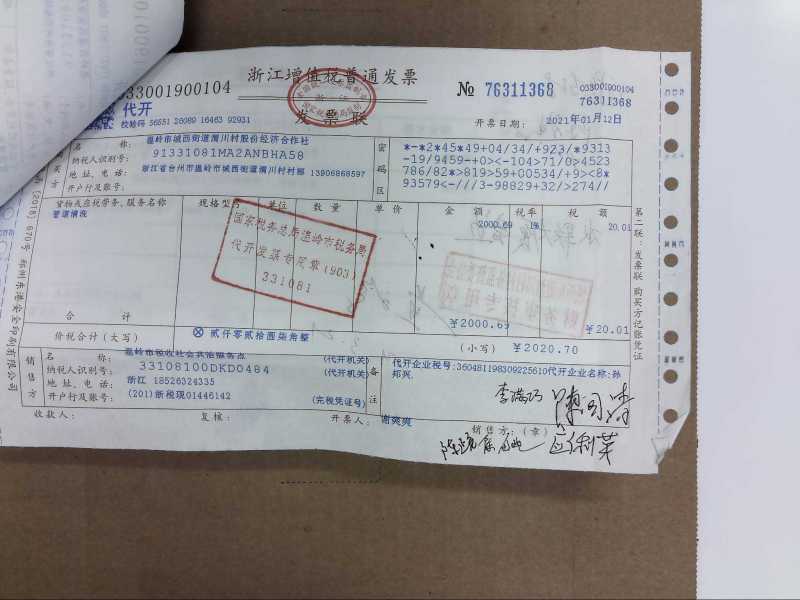 033001900104
浙江增值税普通发票
发票联
№ 76311368
033001900104
76311368
代开
校验码 56551 26089 16463 92931
开票日期： 2021年01月12日
购买方
名 称： 温岭市城西街道渭川村股份经济合作社
纳税人识别号： 91331081MA2ANBHA58
地 址、电 话： 浙江省台州市温岭市城西街道渭川村村部 13906868597
开户行及账号：
密码区
*-*2*45*49+04/34/+923/*9313
-19/9459-+0<-104>71/0>4523
786/82*>819>59+00534/+9><8*
93579<-///3-98829+32/>274//
货物或应税劳务、服务名称 规格型号 单位 数量 单价 金额 税率 税额
管道清洗 2000.69 1% 20.01
国家税务总局温岭市税务局
代开发票专用章(903)
331081
合 计 ￥2000.69 ￥20.01
价税合计（大写） ⊗ 贰仟零贰拾圆柒角整 （小写） ￥2020.70
销售方
名 称： (代开机关)
纳税人识别号： 33108100DKD0484 (代开机关)
地 址、电 话： 浙江 18526324335
开户行及账号： (201)浙税现01446142 (完税凭证号)
备注
代开企业税号:360481198309225610代开企业名称:孙
邦兴.
收款人： 复核： 开票人： 谢爽爽 销售方：（章）
第二联：发票联 购买方记账凭证